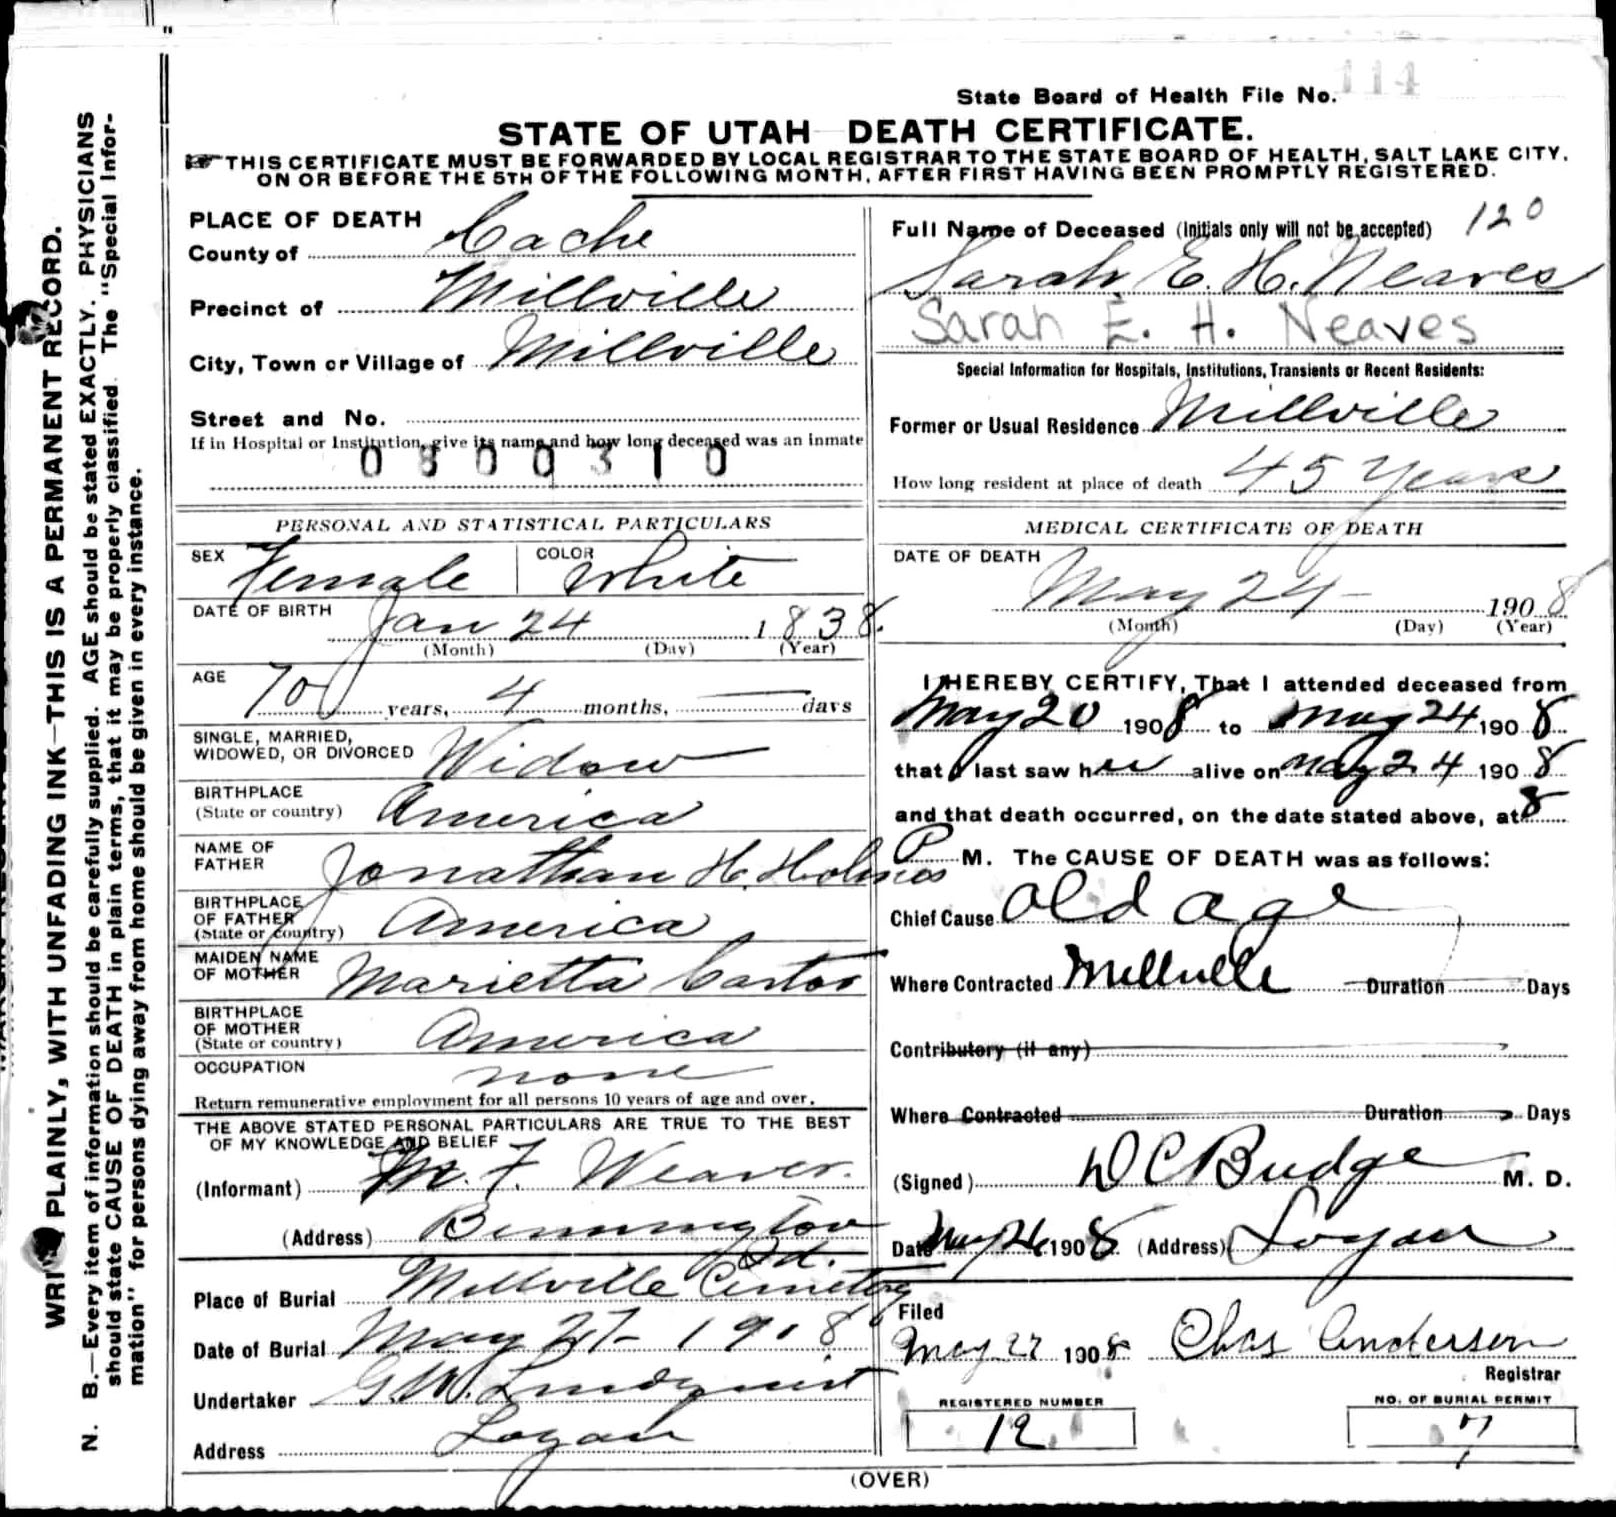 State Board of Health File No. 114
STATE OF UTAH DEATH CERTIFICATE.
THIS CERTIFICATE MUST BE FORWARDED BY LOCAL REGISTRAR TO THE STATE BOARD OF HEALTH, SALT LAKE CITY,
ON OR BEFORE THE 5TH OF THE FOLLOWING MONTH, AFTER FIRST HAVING BEEN PROMPTLY REGISTERED.
PLACE OF DEATH
County of Cache
Precinct of Millville
City, Town or Village of Millville
Street and No.
If in Hospital or Institution, give its name and how long deceased was an inmate
0800310
PERSONAL AND STATISTICAL PARTICULARS
SEX Female COLOR White
DATE OF BIRTH Jan 24 1838.
(Month) (Day) (Year)
AGE 70 years, 4 months, — days
SINGLE, MARRIED,
WIDOWED, OR DIVORCED Widow
BIRTHPLACE
(State or country) America
NAME OF
FATHER Jonathan H. Holmes
BIRTHPLACE
OF FATHER
(State or country) America
MAIDEN NAME
OF MOTHER Marietta Carter
BIRTHPLACE
OF MOTHER
(State or country) America
OCCUPATION none
Return remunerative employment for all persons 10 years of age and over.
THE ABOVE STATED PERSONAL PARTICULARS ARE TRUE TO THE BEST
OF MY KNOWLEDGE AND BELIEF
(Informant) M. F. Weaver.
(Address) Bennington
Id.
Place of Burial Millville Cemetery
Date of Burial May 27 - 1908
Undertaker G.W. Lindquist
Address Logan
Full Name of Deceased (Initials only will not be accepted) 120
Sarah E. H. Neaves
Sarah E. H. Neaves
Special Information for Hospitals, Institutions, Transients or Recent Residents:
Former or Usual Residence Millville
How long resident at place of death 45 Years
MEDICAL CERTIFICATE OF DEATH
DATE OF DEATH
May 24 - 1908
(Month) (Day) (Year)
I HEREBY CERTIFY, That I attended deceased from
May 20 1908 to May 24 1908
that I last saw her alive on May 24 1908
and that death occurred, on the date stated above, at 8
P M. The CAUSE OF DEATH was as follows:
Chief Cause Old age
Where Contracted Millville Duration Days
Contributory (if any)
Where Contracted Duration Days
(Signed) D C Budge M. D.
Date May 26 1908 (Address) Logan
Filed
May 27 1908 Chas Anderson
Registrar
REGISTERED NUMBER
12
NO. OF BURIAL PERMIT
7
(OVER)
WRITE PLAINLY, WITH UNFADING INK—THIS IS A PERMANENT RECORD.
N. B.—Every item of information should be carefully supplied. AGE should be stated EXACTLY. PHYSICIANS
should state CAUSE OF DEATH in plain terms, that it may be properly classified. The "Special Infor-
mation" for persons dying away from home should be given in every instance.